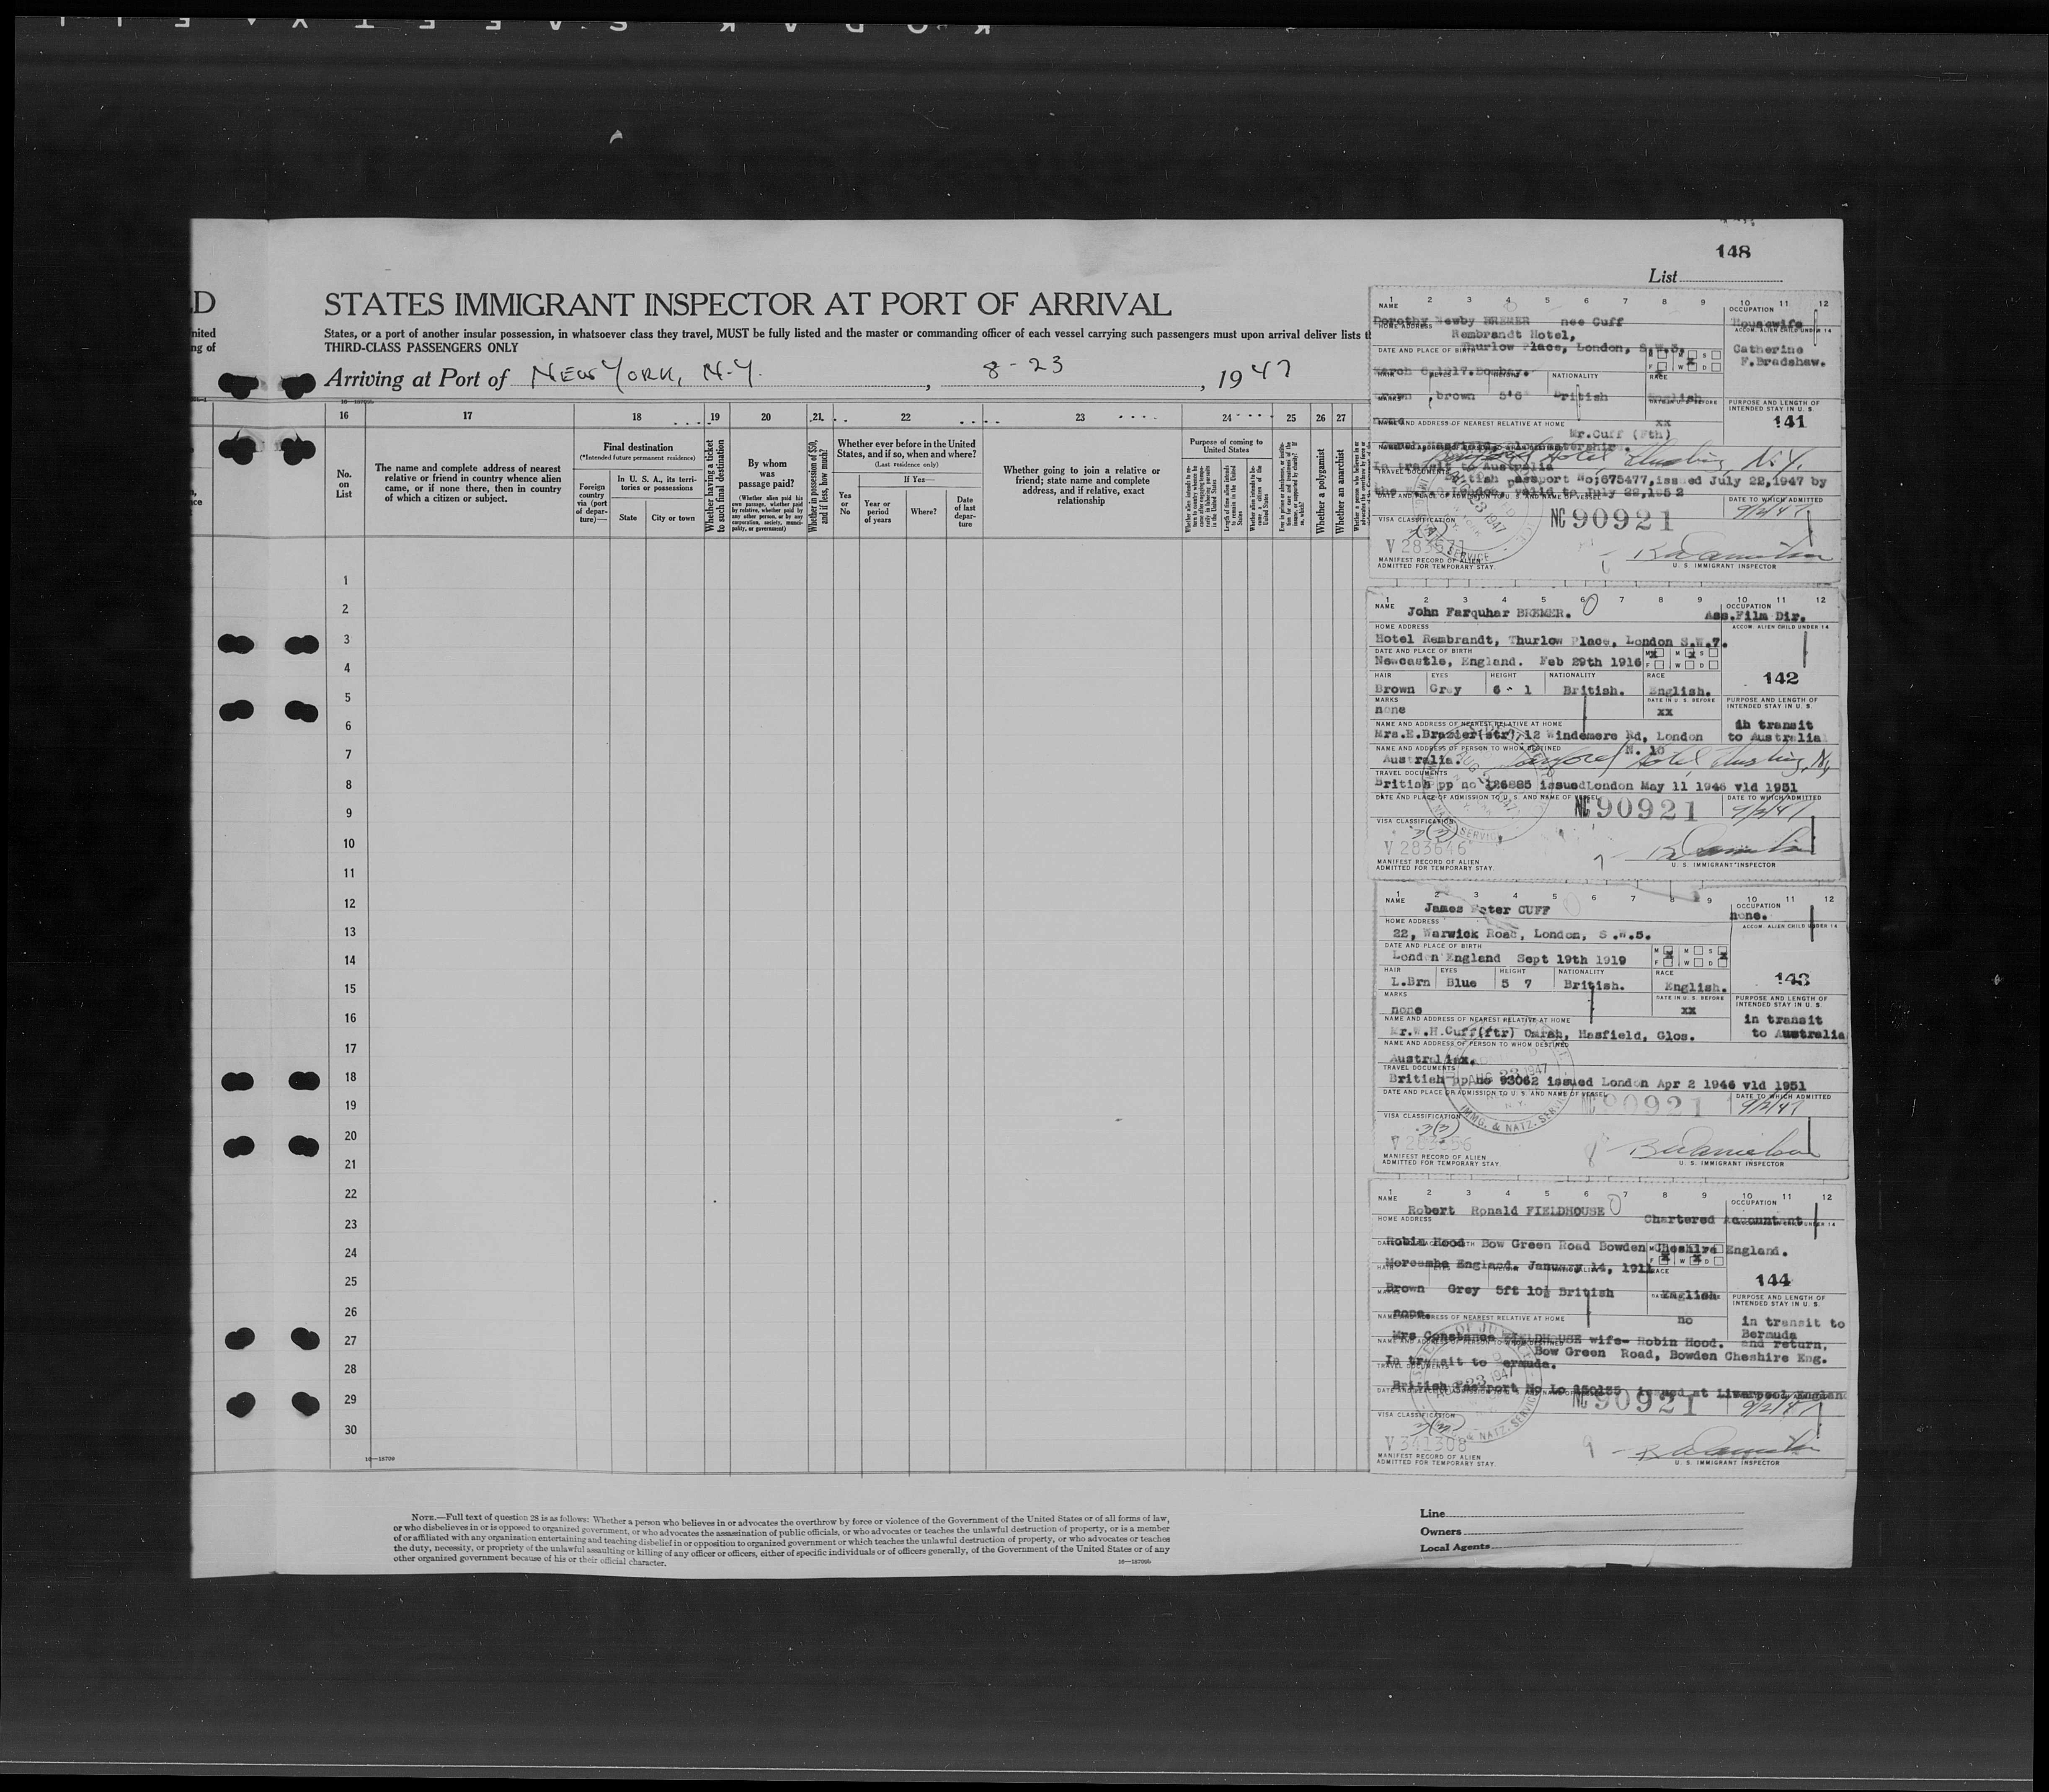 KODAK SAFETY FILM
148
List
STATES IMMIGRANT INSPECTOR AT PORT OF ARRIVAL
States, or a port of another insular possession, in whatsoever class they travel, MUST be fully listed and the master or commanding officer of each vessel carrying such passengers must upon arrival deliver lists
THIRD-CLASS PASSENGERS ONLY
Arriving at Port of NEW YORK, N.Y. , 8-23 , 1947
16 17 18 19 20 21 22 23 24 25 26 27
No. on List
The name and complete address of nearest relative or friend in country whence alien came, or if none there, then in country of which a citizen or subject.
Final destination
(*Intended future permanent residence)
Foreign country via (port of departure)—
In U. S. A., its territories or possessions
State
City or town
Whether having a ticket to such final destination
By whom was passage paid?
(Whether alien paid his own passage, whether paid by relative, whether paid by any other person, or by any corporation, society, municipality, or government)
Whether in possession of $50, and if less, how much?
Whether ever before in the United States, and if so, when and where?
(Last residence only)
Yes or No
If Yes—
Year or period of years
Where?
Date of last departure
Whether going to join a relative or friend; state name and complete address, and if relative, exact relationship
Purpose of coming to United States
Length of time alien intends to remain in the United States
Whether a polygamist
Whether an anarchist
1
2
3
4
5
6
7
8
9
10
11
12
13
14
15
16
17
18
19
20
21
22
23
24
25
26
27
28
29
30
16—18709
NOTE.—Full text of question 28 is as follows: Whether a person who believes in or advocates the overthrow by force or violence of the Government of the United States or of all forms of law,
or who disbelieves in or is opposed to organized government, or who advocates the assassination of public officials, or who advocates or teaches the unlawful destruction of property, or is a member
of or affiliated with any organization entertaining and teaching disbelief in or opposition to organized government or which teaches the unlawful destruction of property, or who advocates or teaches
the duty, necessity, or propriety of the unlawful assaulting or killing of any officer or officers, either of specific individuals or of officers generally, of the Government of the United States or of any
other organized government because of his or their official character.
Line
Owners
Local Agents
1 2 3 4 5 6 7 8 9 10 11 12
NAME
OCCUPATION
Dorothy Newby BREMER nee Cuff
Housewife
HOME ADDRESS
Rembrandt Hotel,
Thurlow Place, London, S.W.3.
Catherine F.Bradshaw.
DATE AND PLACE OF BIRTH
March 6,1917.Bombay.
NATIONALITY
brown 5'6 British English
PURPOSE AND LENGTH OF INTENDED STAY IN U. S.
141
none
xx
NAME AND ADDRESS OF NEAREST RELATIVE AT HOME
Mr.Cuff (Fth)
Hotel, Flushing, N.Y.
In transit to Australia
British passport No;675477,issued July 22,1947 by
valid to July 22,1952
DATE TO WHICH ADMITTED
9/2/47
VISA CLASSIFICATION
NC 90921
MANIFEST RECORD OF ALIEN
ADMITTED FOR TEMPORARY STAY.
U. S. IMMIGRANT INSPECTOR
1 2 3 4 5 6 7 8 9 10 11 12
NAME John Farquhar BREMER.
OCCUPATION
Ass.Film Dir.
HOME ADDRESS
ACCOM. ALIEN CHILD UNDER 14
Hotel Rembrandt, Thurlow Place, London S.W.7.
DATE AND PLACE OF BIRTH
Newcastle, England. Feb 29th 1916
142
HAIR EYES HEIGHT NATIONALITY RACE
Brown Grey 6 - 1 British. English.
MARKS
none
DATE IN U. S. BEFORE
xx
PURPOSE AND LENGTH OF INTENDED STAY IN U. S.
in transit to Australia
NAME AND ADDRESS OF NEAREST RELATIVE AT HOME
Mrs.E.Brazier(str) 12 Windemere Rd, London N. 10
NAME AND ADDRESS OF PERSON TO WHOM DESTINED
Australia. Hotel, Flushing, NY
TRAVEL DOCUMENTS
British pp no 126885 issuedLondon May 11 1946 vld 1951
DATE AND PLACE OF ADMISSION TO U. S. AND NAME OF VESSEL
DATE TO WHICH ADMITTED
NC 90921
9/2/47
VISA CLASSIFICATION
3(3)
V 283646
MANIFEST RECORD OF ALIEN
ADMITTED FOR TEMPORARY STAY.
U. S. IMMIGRANT INSPECTOR
1 2 3 4 5 6 7 8 9 10 11 12
NAME
James Peter CUFF
OCCUPATION
none.
HOME ADDRESS
ACCOM. ALIEN CHILD UNDER 14
22, Warwick Road, London, S.W.5.
DATE AND PLACE OF BIRTH
London England Sept 19th 1919
143
HAIR EYES HEIGHT NATIONALITY RACE
L.Brn Blue 5 7 British. English.
MARKS
none
DATE IN U. S. BEFORE
xx
PURPOSE AND LENGTH OF INTENDED STAY IN U. S.
in transit to Australia
NAME AND ADDRESS OF NEAREST RELATIVE AT HOME
Mr.W.H.Cuff(ftr) Omrah, Hasfield, Glos.
NAME AND ADDRESS OF PERSON TO WHOM DESTINED
TRAVEL DOCUMENTS
British pp no 93062 issued London Apr 2 1946 vld 1951
DATE AND PLACE OR ADMISSION TO U. S. AND NAME OF VESSEL
DATE TO WHICH ADMITTED
NC 90921
9/2/47
VISA CLASSIFICATION
3(3)
AUG 23 1947
IMMG. & NATZ. SERVICE
MANIFEST RECORD OF ALIEN
ADMITTED FOR TEMPORARY STAY.
U. S. IMMIGRANT INSPECTOR
1 2 3 4 5 6 7 8 9 10 11 12
NAME
Robert Ronald FIELDHOUSE
OCCUPATION
Chartered Accountant
HOME ADDRESS
Robin Hood Bow Green Road Bowden Cheshire England.
Morecambe England. January 14, 1911
144
Brown Grey 5ft 10½ British English
none.
no
PURPOSE AND LENGTH OF INTENDED STAY IN U. S.
in transit to Bermuda and return.
NAME AND ADDRESS OF NEAREST RELATIVE AT HOME
Mrs Constance FIELDHOUSE wife- Robin Hood.
Bow Green Road, Bowden Cheshire Eng.
In transit to ermuda.
TRAVEL DOCUMENTS
British Passport No Lo 250135 issued at Liverpool England
NC 90921
9/2/47
VISA CLASSIFICATION
V 341308
MANIFEST RECORD OF ALIEN
ADMITTED FOR TEMPORARY STAY.
U. S. IMMIGRANT INSPECTOR